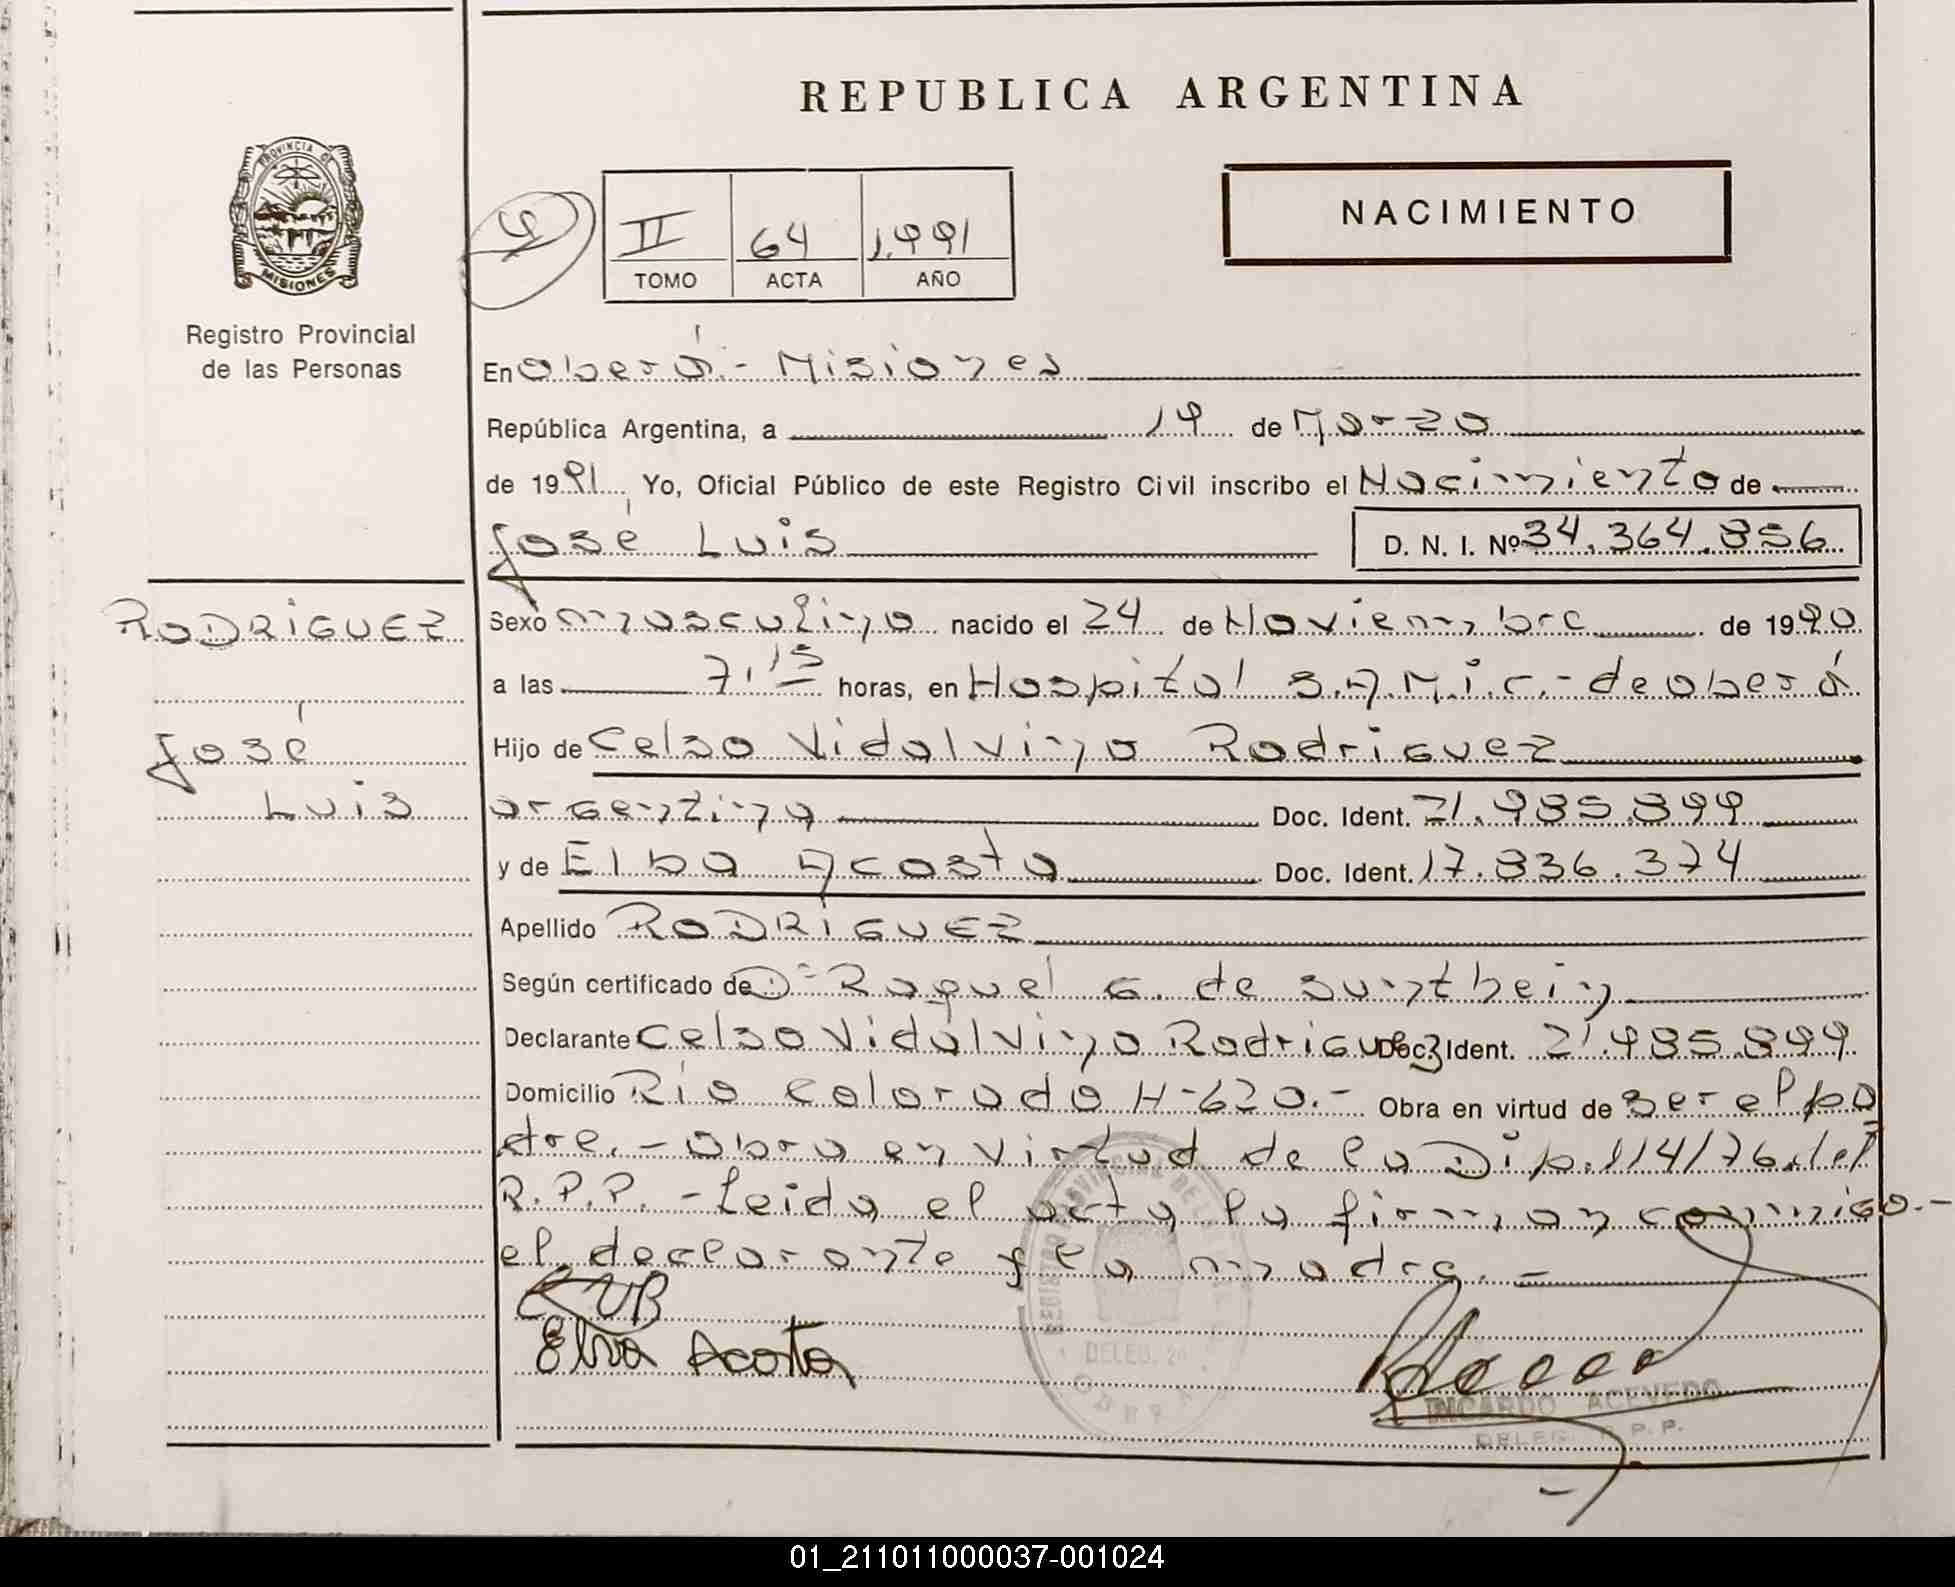 REPUBLICA ARGENTINA
PROVINCIA DE
MISIONES
Registro Provincial
de las Personas
II 64 1.991
TOMO ACTA AÑO
NACIMIENTO
En Oberá.- Misiones
República Argentina, a 19 de Marzo
de 1991. Yo, Oficial Público de este Registro Civil inscribo el Nacimiento de
José Luis D. N. I. Nº 34.364.856
RODRIGUEZ
José
Luis
Sexo masculino nacido el 24 de Noviembre de 1990
a las 7,15 horas, en Hospital S.A.M.i.c.- de oberá
Hijo de Celso Vidalvino Rodriguez
argentina Doc. Ident. 21.985.899
y de Elba Acosta Doc. Ident. 17.836.374
Apellido RODRIGUEZ
Según certificado de Raquel G. de
Declarante Celso Vidalvino Rodriguez Doc. Ident. 21.985.899
Domicilio Río Colorado N-620.- Obra en virtud de ser el pa
dre.- Obra en virtud de la Dip.114/76.del
R.P.P.- Leida el acta la firman conmigo.-
el declarante y la madre.-
Elva Acosta
REGISTRO PROVINCIAL DE LAS
DELEG.
OBERA
RICARDO ACEVEDO
DELEG. P. P.
01_211011000037-001024